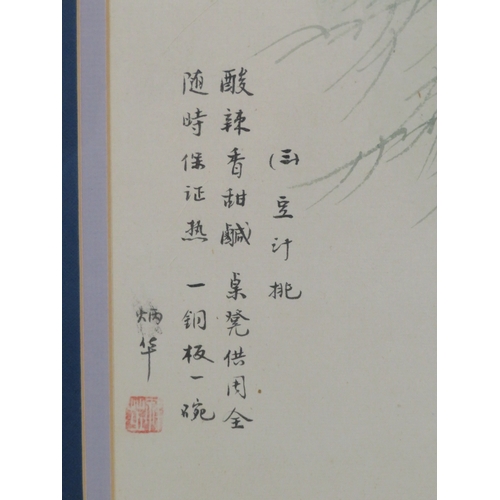 (三)豆汁挑
酸辣香甜鹹 桌凳供周全
随時保证热 一铜板一碗
炳华